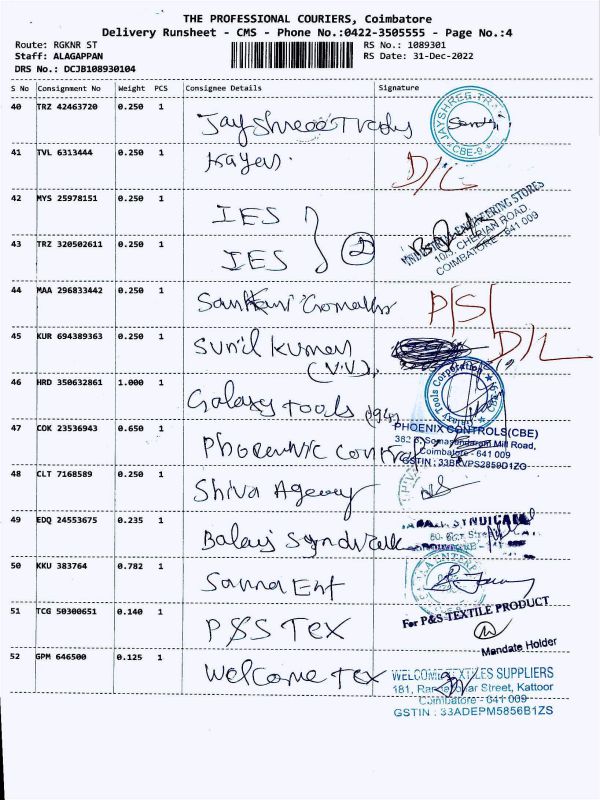 THE PROFESSIONAL COURIERS, Coimbatore
Delivery Runsheet - CMS - Phone No.:0422-3505555 - Page No.:4
Route: RGKNR ST
RS No.: 1089301
Staff: ALAGAPPAN
RS Date: 31-Dec-2022
DRS No.: DCJB108930104
S No Consignment No Weight PCS Consignee Details Signature
40 TRZ 42463720 0.250 1 Jayshree
JAYSHREE TRA
CBE-9
41 TVL 6313444 0.250 1 D/L
42 MYS 25978151 0.250 1 IES
INDUSTRIAL ENGINEERING STORES
10/3, CHERIAN ROAD,
COIMBATORE - 641 009
43 TRZ 320502611 0.250 1 IES 2
44 MAA 296833442 0.250 1 P/S/
45 KUR 694389363 0.250 1 Sunil Kumar D/L
(V.V)
46 HRD 350632861 1.000 1 Galaxy Tools
Galaxy Tools Corporation
47 COK 23536943 0.650 1 Phoennic Control
PHOENIX CONTROLS(CBE)
382 B, Somasundaram Mill Road,
Coimbatore - 641 009
GSTIN : 33BKVPS2859D1ZO
48 CLT 7168589 0.250 1 Shiva Agency
49 EDQ 24553675 0.235 1 Balaji
SYNDICATE
50 KKU 383764 0.782 1 Sanna Ent
51 TCG 50300651 0.140 1 P&S Tex
For P&S TEXTILE PRODUCT
Mandate Holder
52 GPM 646500 0.125 1 Welcome Tex
WELCOME TEXTILES SUPPLIERS
181, Street, Kattoor
Coimbatore - 641 009
GSTIN : 33ADEPM5856B1ZS